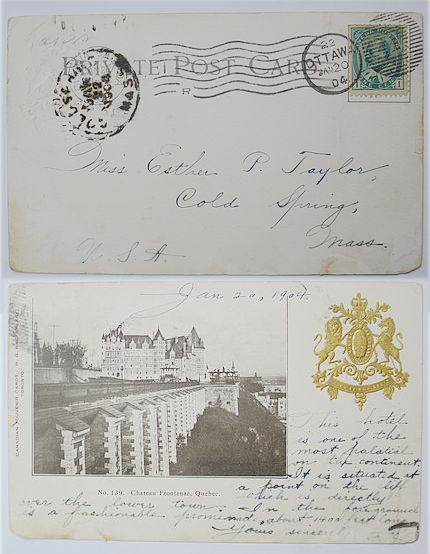 PRIVATE POST CARD
22
OTTAWA
JAN 20
04
R
MASS
Miss Esther P. Taylor,
Cold Spring,
Mass.
U. S. A.
Jan 20, 1904.
CANADIAN SOUVENIR CARDS
TORONTO
No. 139. Chateau Frontenac, Quebec.
This hotel
is one of the
most palatial
on the continent.
It is situated at
a point on the
which is, directly
over the lower town. In the foreground
is a fashionable promenade, about 1400 feet long
Yours sincerely